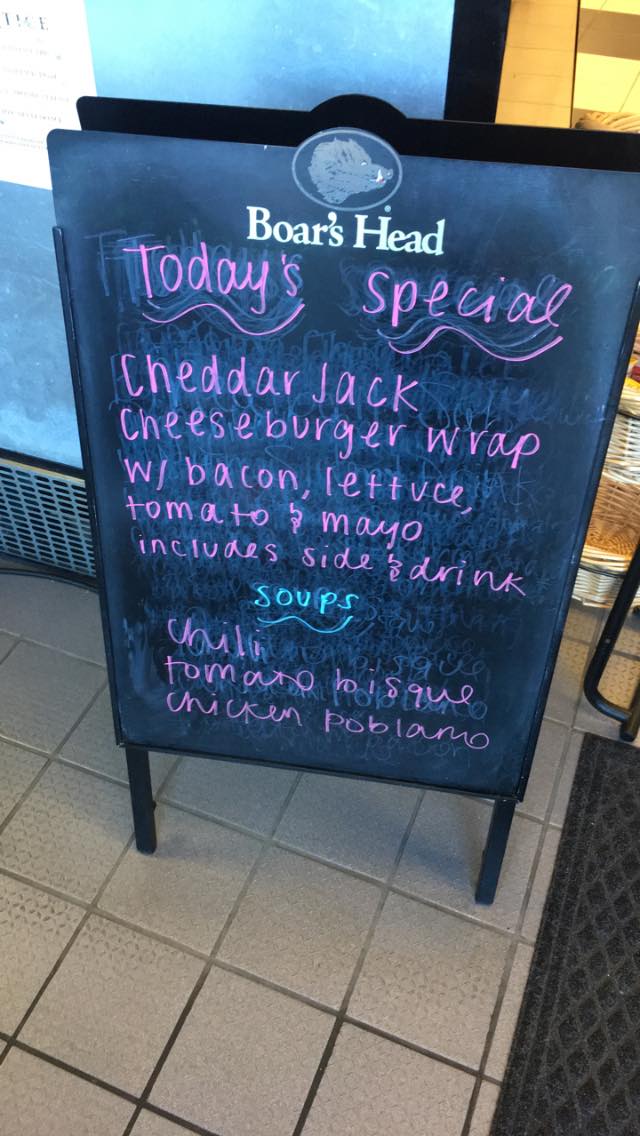 TICE
Boar's Head
Today's Special
Cheddar Jack
Cheeseburger wrap
w/ bacon, lettuce,
tomato & mayo
includes side & drink
soups
chili
tomato bisque
chicken poblano